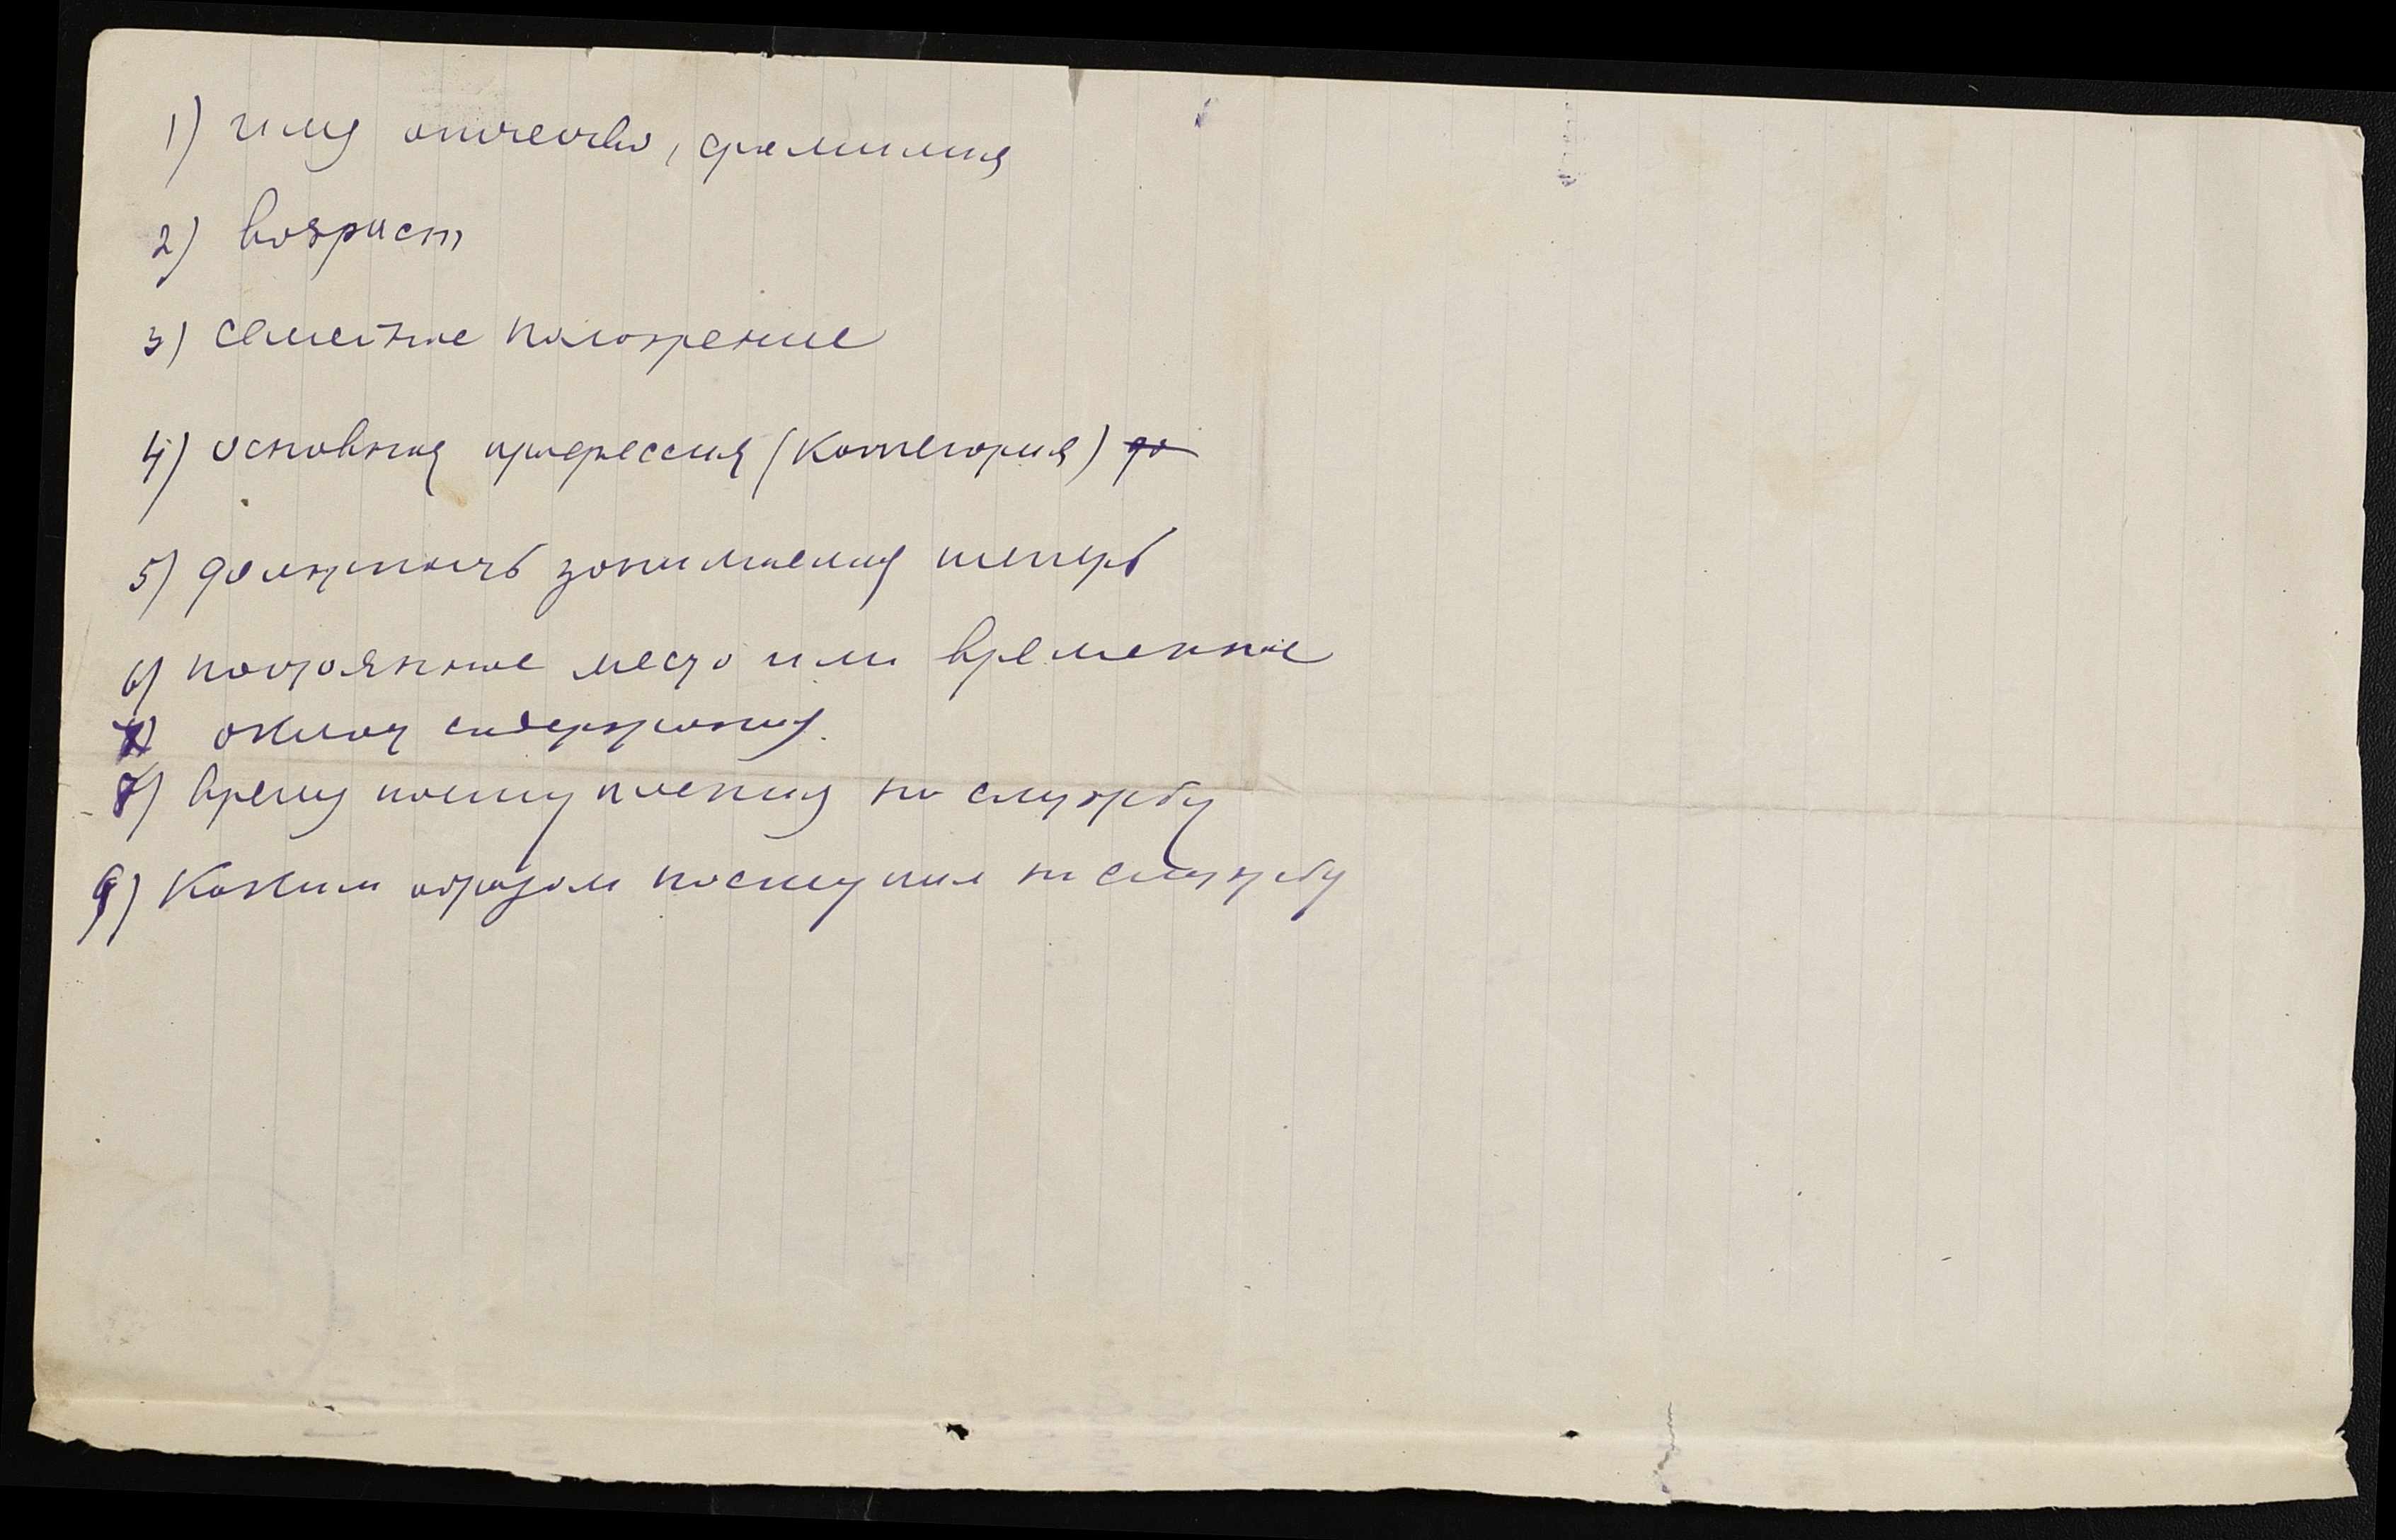 1) имя отчество, фамилия
2) возраст
3) семейное положение
4) основная профессия (категория) до
5) должность занимаемая теперь
6) постоянное место или временное
7) оклад содержания.
8) время поступления на службу
9) Каким образом поступил на службу